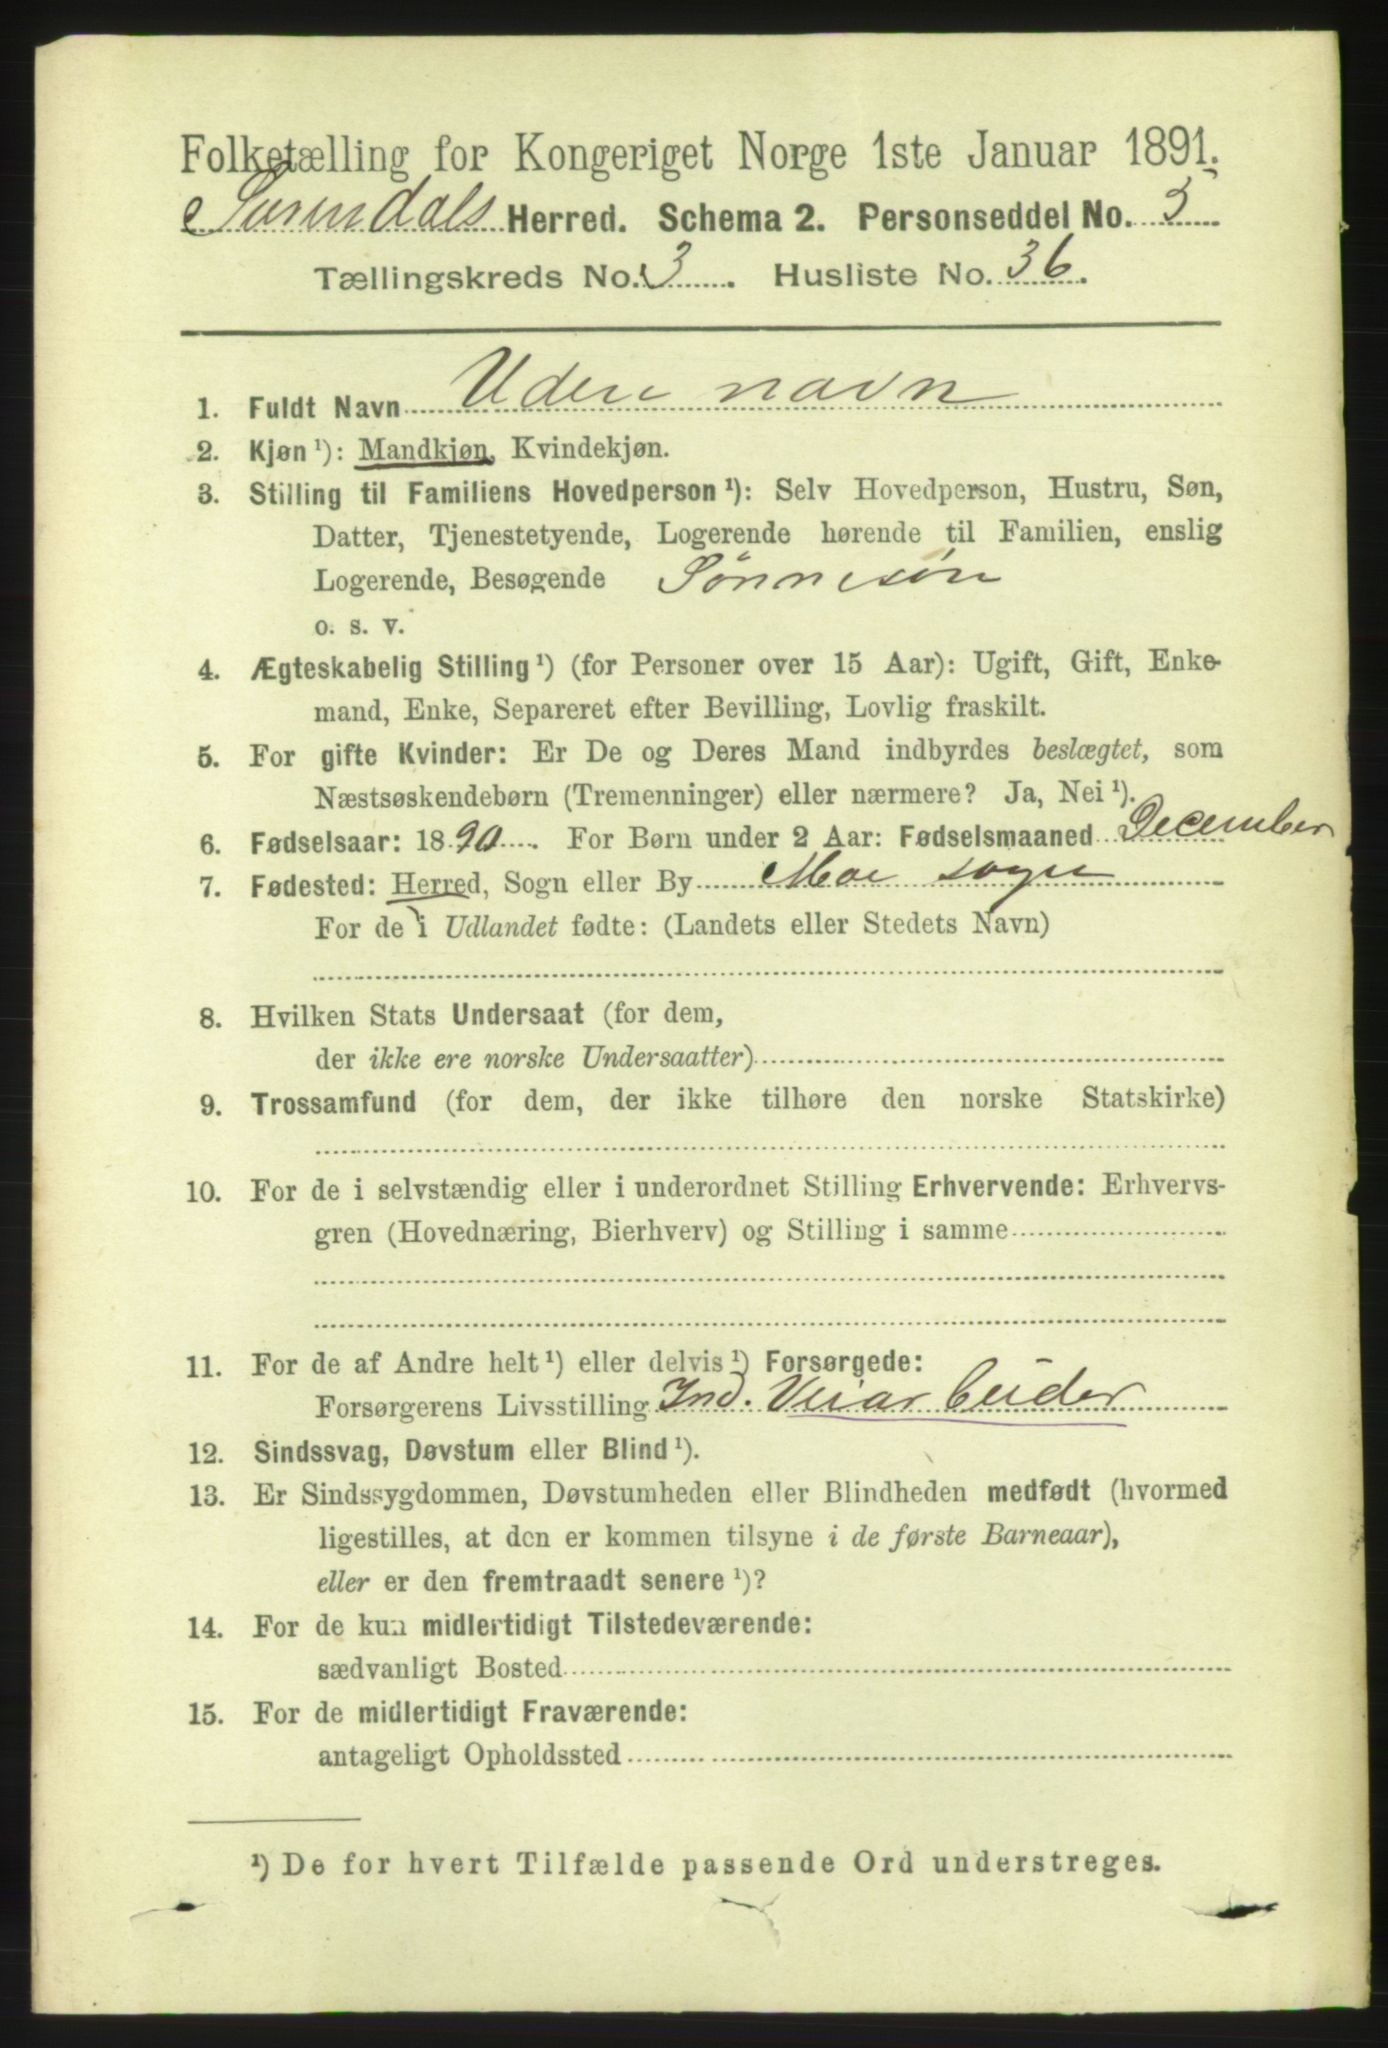 Folketælling for Kongeriget Norge 1ste Januar 1891.
Surendals Herred. Schema 2. Personseddel No. 5
Tællingskreds No. 3. Husliste No. 36.
1. Fuldt Navn Uden navn
2. Kjøn ¹): Mandkjøn, Kvindekjøn.
3. Stilling til Familiens Hovedperson ¹): Selv Hovedperson, Hustru, Søn,
Datter, Tjenestetyende, Logerende hørende til Familien, enslig
Logerende, Besøgende Sønnesøn
o. s. v.
4. Ægteskabelig Stilling ¹) (for Personer over 15 Aar): Ugift, Gift, Enke-
mand, Enke, Separeret efter Bevilling, Lovlig fraskilt.
5. For gifte Kvinder: Er De og Deres Mand indbyrdes beslægtet, som
Næstsøskendebørn (Tremenninger) eller nærmere? Ja, Nei ¹).
6. Fødselsaar: 1890. For Børn under 2 Aar: Fødselsmaaned December
7. Fødested: Herred, Sogn eller By Moe sogn
For de i Udlandet fødte: (Landets eller Stedets Navn)
8. Hvilken Stats Undersaat (for dem,
der ikke ere norske Undersaatter)
9. Trossamfund (for dem, der ikke tilhøre den norske Statskirke)
10. For de i selvstændig eller i underordnet Stilling Erhvervende: Erhvervs-
gren (Hovednæring, Bierhverv) og Stilling i samme
11. For de af Andre helt ¹) eller delvis ¹) Forsørgede:
Forsørgerens Livsstilling Ind. Veiarbeider
12. Sindssvag, Døvstum eller Blind ¹).
13. Er Sindssygdommen, Døvstumheden eller Blindheden medfødt (hvormed
ligestilles, at den er kommen tilsyne i de første Barneaar),
eller er den fremtraadt senere ¹)?
14. For de kun midlertidigt Tilstedeværende:
sædvanligt Bosted
15. For de midlertidigt Fraværende:
antageligt Opholdssted
¹) De for hvert Tilfælde passende Ord understreges.